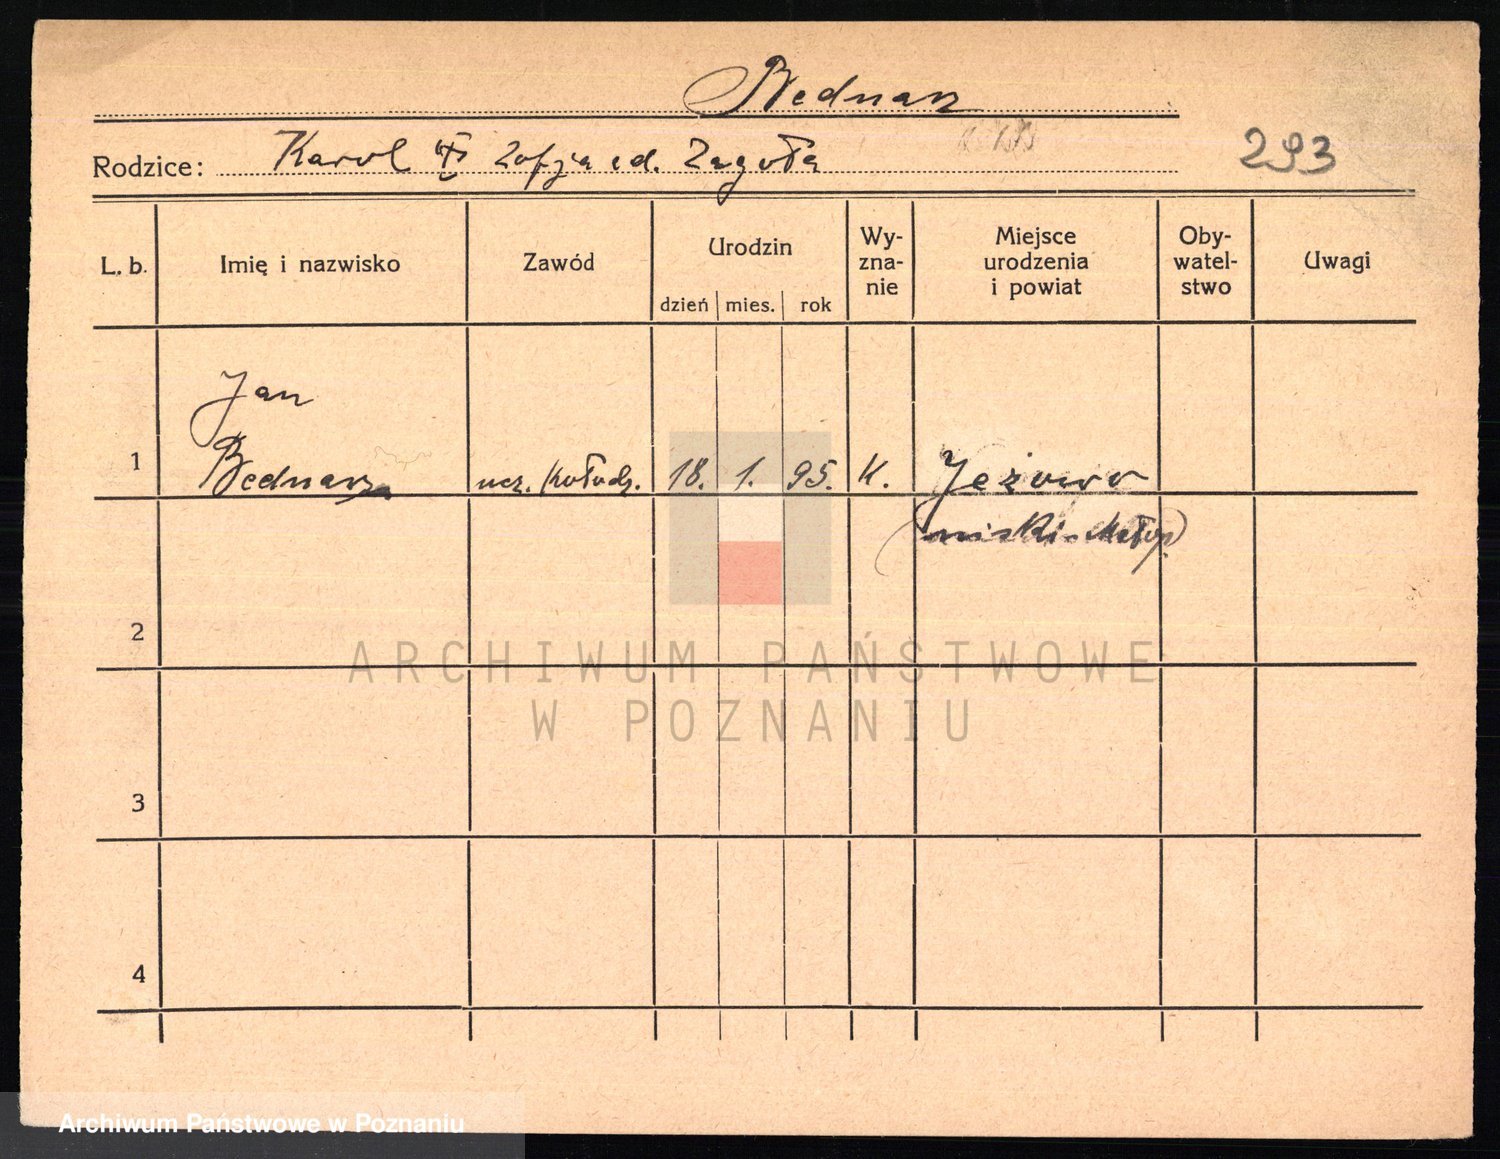 Bednarz
Rodzice: Karol i Zofja z d. Zagoła
293
L. b. Imię i nazwisko Zawód Urodzin dzień mies. rok Wy-zna-nie Miejsce urodzenia i powiat Oby-watel-stwo Uwagi
Jan
1 Bednarz ucz. kołodz. 18. 1. 95. K. Jeżowo
(niski - Małop.)
2
3
4
ARCHIWUM PAŃSTWOWE
W POZNANIU
Archiwum Państwowe w Poznaniu